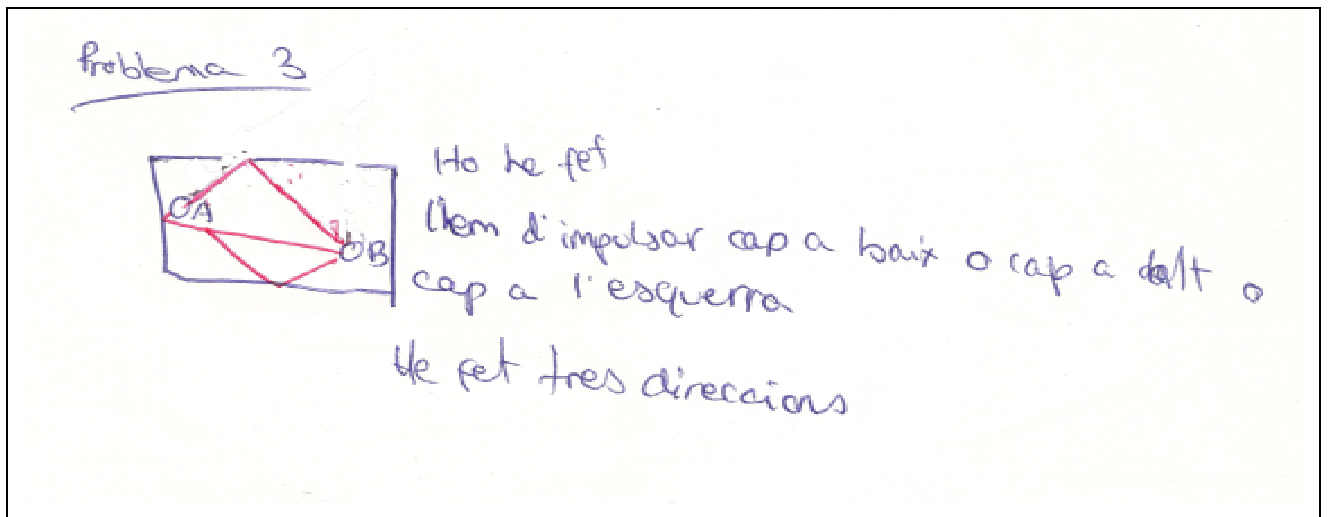 Problema 3
A
B
Ho he fet
l'hem d'impulsar cap a baix o cap a dalt o
cap a l'esquerra
He fet tres direccions